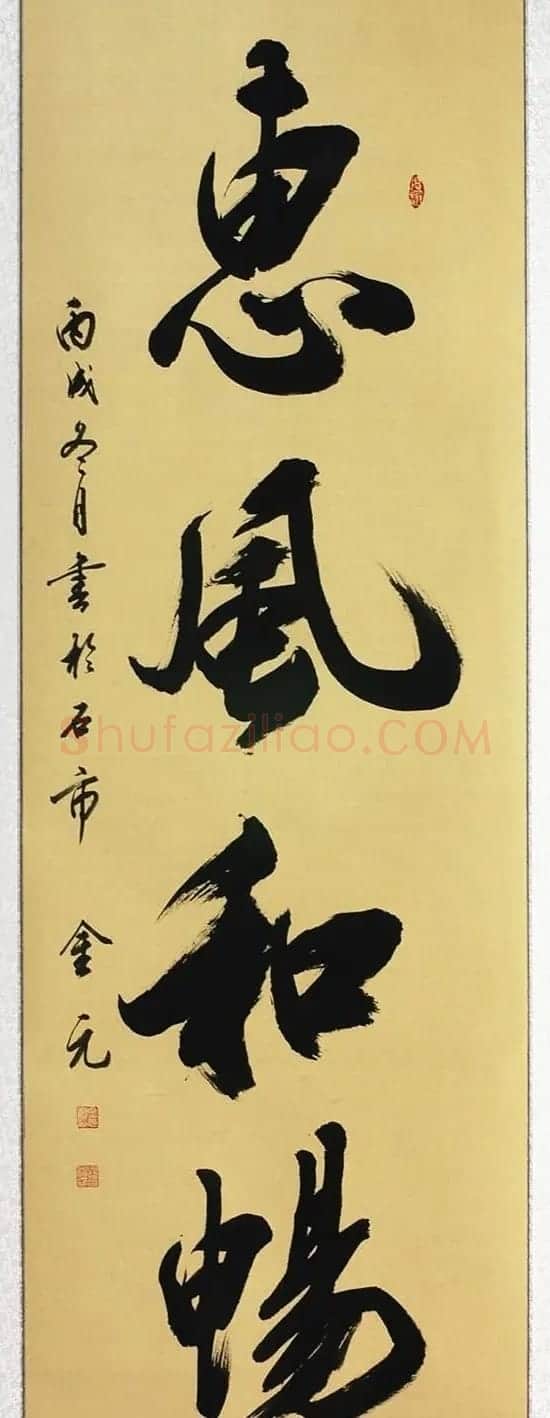 惠風和暢
丙戌冬月書於石市 金元
Shufaziliao.COM